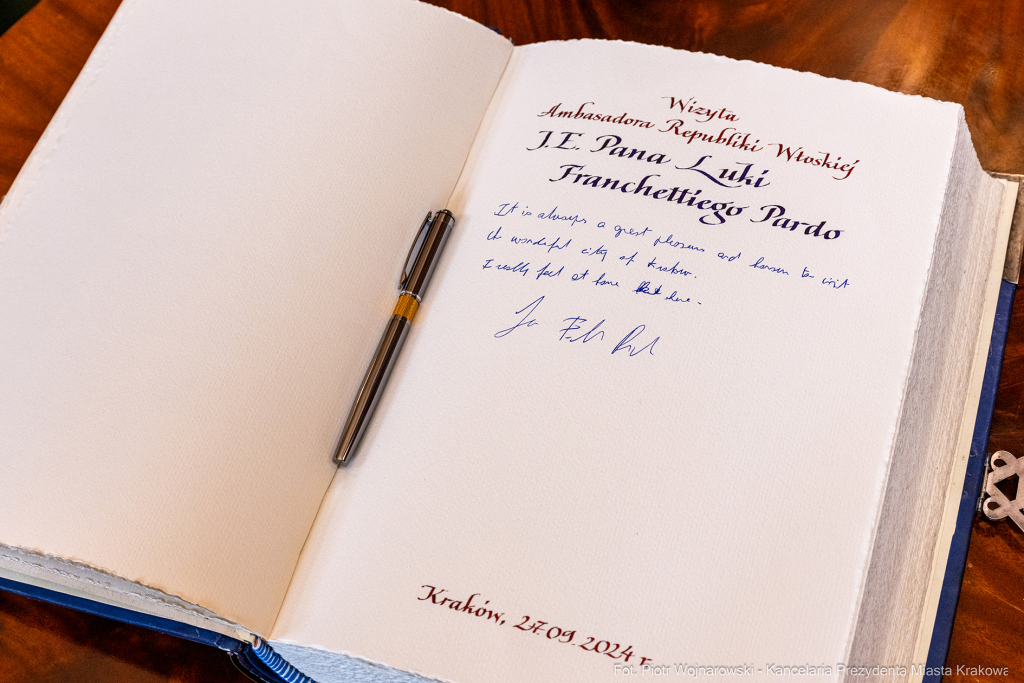 Wizyta
Ambasadora Republiki Włoskiej
J.E. Pana Luki
Franchettiego Pardo
It is always a great pleasure and honour to visit
the wonderful city of Krakow.
I really feel at home here.
Kraków, 27.09.2024 r.
Fot. Piotr Wojnarowski - Kancelaria Prezydenta Miasta Krakowa